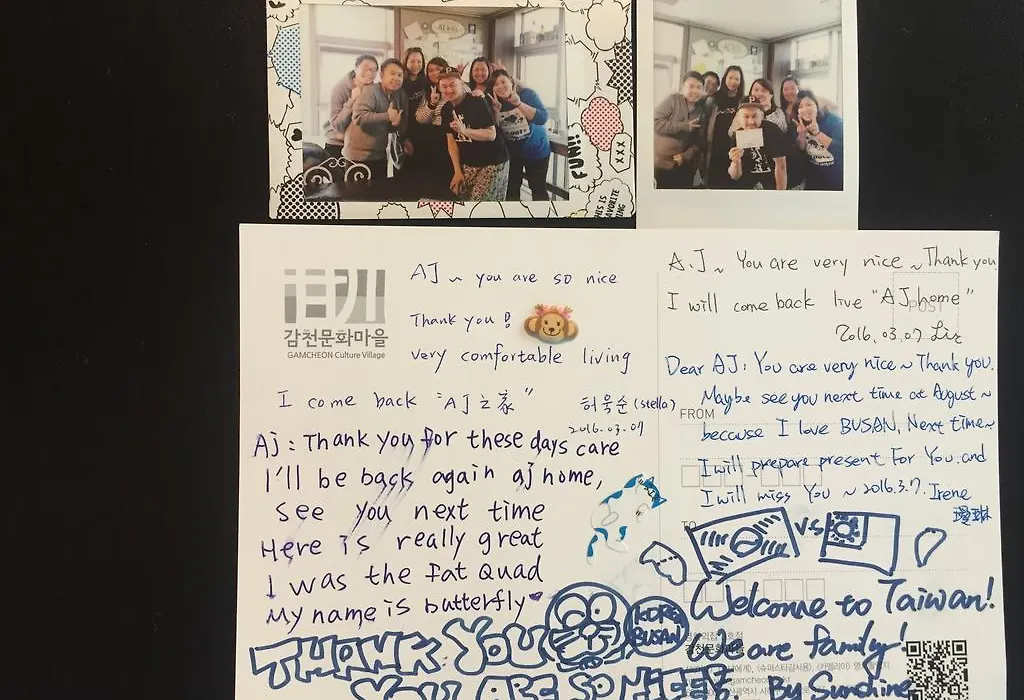 FUN!!
XXX
THIS IS
FAVORITE
감천문화마을
GAMCHEON Culture Village
AJ ~ you are so nice
Thank you!
very comfortable living
I come back "AJ之家"
허욱순 (stella)
2016.03.07
Aj : Thank you for these days care
I'll be back again aj home,
see you next time
Here is really great
I was the Fat Quad
My name is butterfly
THANK YOU
YOU ARE SO NICE
A.J ~ You are very nice ~ Thank you
I will come back live "AJ home"
POST
2016.03.07 Liz
Dear AJ: You are very nice ~ Thank you.
Maybe see you next time at August ~
FROM
because I love BUSAN, Next time~
I will prepare present For You. and
I will miss You ~ 2016.3.7. Irene
TO
VS
KORE
BUSAN
Welcome to Taiwan!
We are family!
By Sunshine